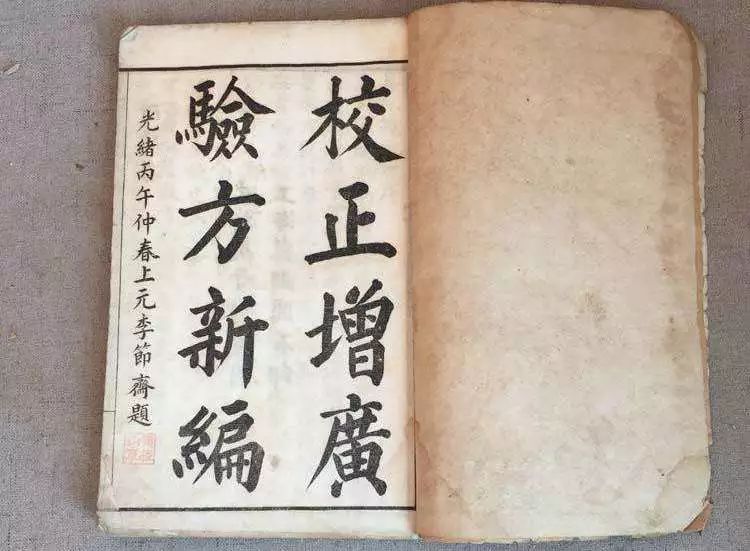 校正增廣
驗方新編
光緒丙午仲春上元李節齋題